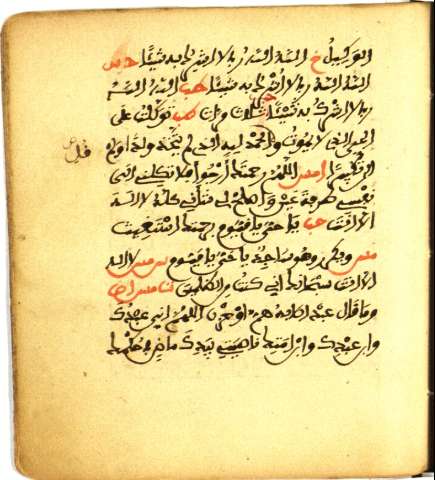 الوكيل خ الله الله ربي لا اشرك به شيئا د س
الله الله ربي لا اشرك به شيئا حب الله الله
ربي لا اشرك به شيئا ثلاث مرات طب توكلت على
الحي الذي لا يموت والحمد لله الذي لم يتخذ ولدا
قل
تكبيرا مس اللهم رحمتك أرجوا فلا تكلني الى
نفسي طرفة عين واصلح لي شأني كله لا اله
الا انت حب يا حي يا قيوم برحمتك استغيث
مس ويكرر وهو ساجد يا حي يا قيوم س مس لا اله
الا انت سبحانك اني كنت من الظالمين ت س مس ا ص
وما قال عبد اصابه هم او حزن اللهم اني عبدك
وابن عبدك وابن امتك ناصيتي بيدك ماض في حكمك